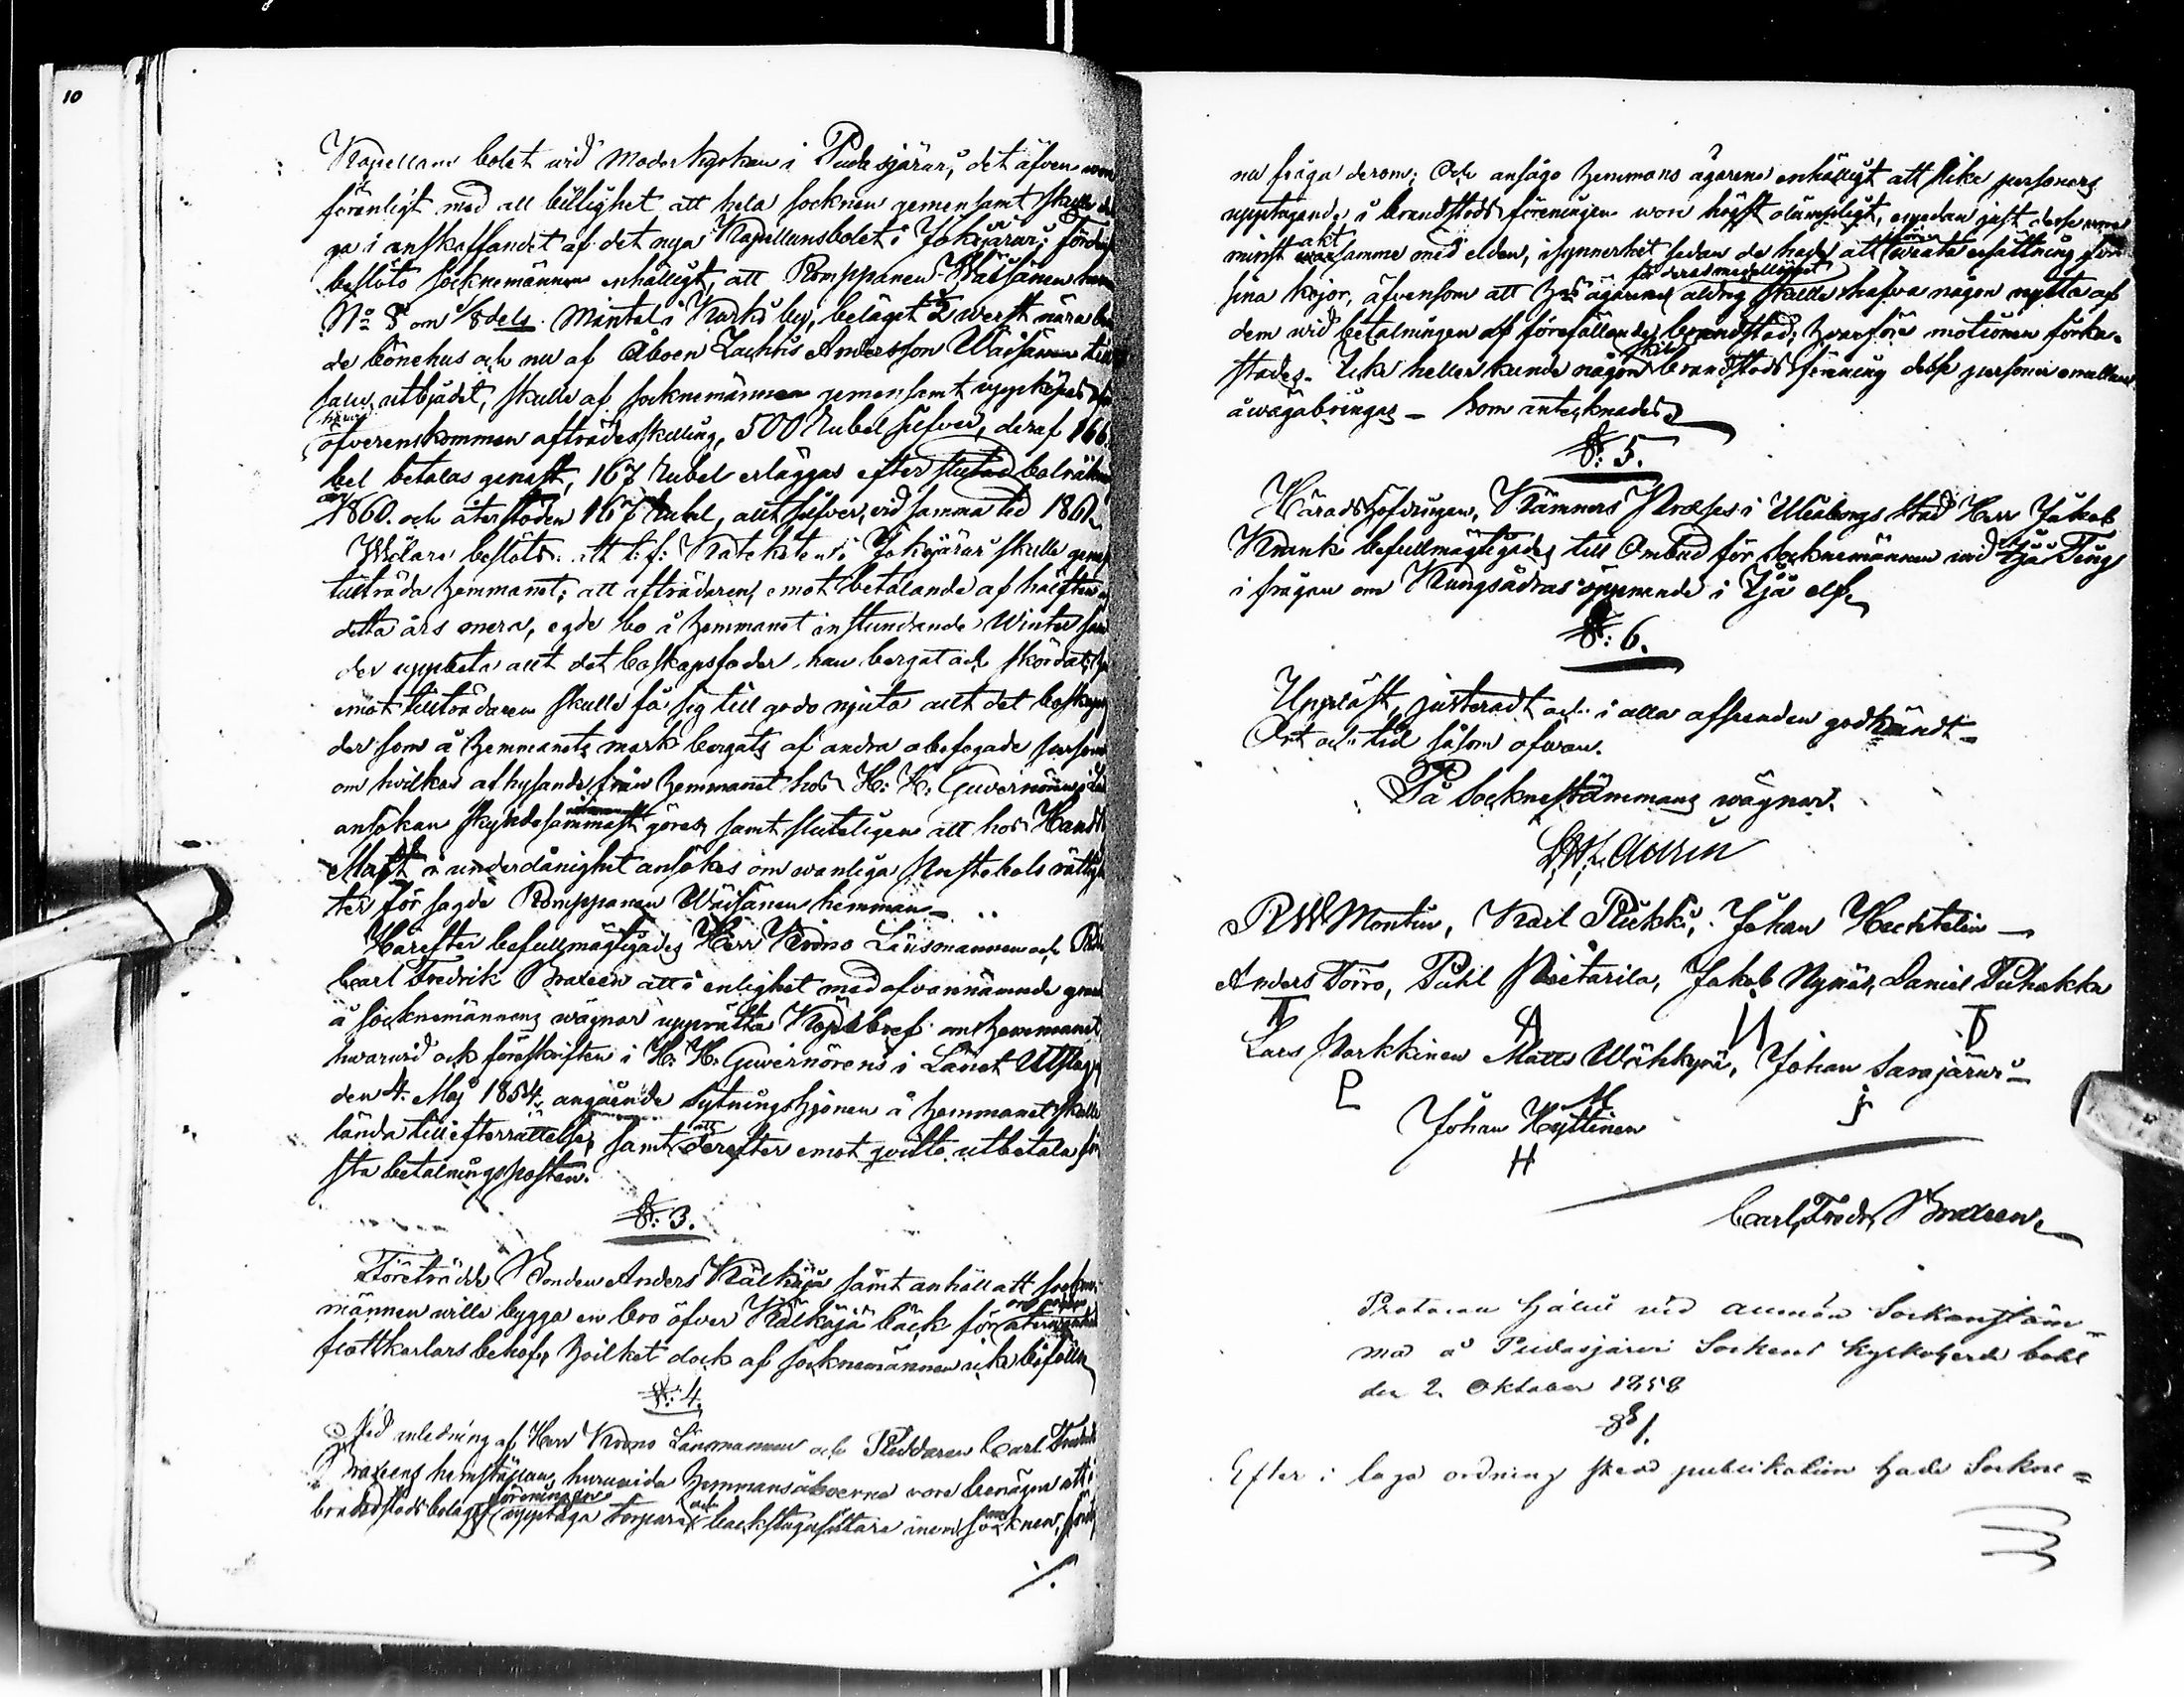 10
Kapellans bolet wid Moderkyrkan i Pudasjärwi, det äfven wore
förenligt med all billighet att hela socknen gemensamt skulle
ga i anskaffandet af det nya Kapellansbolet i Jokijärwi;
beslöto Socknemännen enhälligt, att Romppanen Wäisänen
No 8 om 1/8 dels Mantal i Kurki by, beläget 1/2 werst nära
de bönehus och nu af Åboen Zachris Andersson Wäisänen till
salu utbjudet, skulle af socknemännen gemensamt uppköpas
härtill
öfverenskommen afträdesskilling, 500 Rubel silfver, deraf 166
bel betalas genast, 167 Rubel erläggas efter slutad
1860. och återstoden 167 Rubel, allt silfver, vid samma tid 1861.
Widare beslöts att t. f. Katekheten i Jokijärwi skulle genast
tillträda hemmanet; att afträdaren, emot betalande af hälften
detta års onera, egde bo å hemmanet instundande Winter
der uppbeta allt det boskapsfoder han bergat och skördat;
emot tillträdaren skulle få sig till godo njuta allt det
der som å hemmanets mark bergats af andra obefogade
om hvilkas afhysande från hemmanet hos H: H: Guvernören i
ansökan skyndesammast göres, samt sluteligen att hos
Majt i underdånighet ansökes om wanliga Prestebols
ter för sagde Romppanen Wäisänen hemman.
Härefter befullmägtigades Herr Krono Länsmannen och
Carl Fredrik Braxen att i enlighet med ofvannämnde
å socknemännens wägnar upprätta Köpebref om hemmanet
hwarwid och föreskriften i H: H: Guvernörens i Länet Utslag
den 4. Maj 1854 angående Sytningshjonen å hemmanet skulle
lända till efterrättelse, samt att derefter emot qvitto utbetala
sta betalningsposten.
§: 3.
Företrädde Bonden Anders Kälkäjä samt anhöll att
männen wille bygga en bro öfver Kälkäjä bäck för
flottkarlars behof, hvilket dock af socknemännen icke
§: 4.
Vid inledning af Herr Krono Länsmannen och Riddaren Carl
Braxens hemställan, huruvida hemmansåboerna vore benägne att i
föreningen
brandstodsbolaget upptaga torpare och backstugusittare inom socknen,
nu fråga derom; Och ansågo hemmans ägarene enhälligt att slike personers
upptagande i brandstods föreningen wore högst olämpligt, emedan just desse wore
minst aktsamme med elden, isynnerhet sedan de hade att wänta ersättning för
för deras medellöshet
sina kojor, äfvensom att ägarene aldrig skulle hafwa någon nytta af
dem wid betalningen af förefallande brandstod; hwarföre motionen förka-
stades. Icke heller kunde någon brandstods förening desse personer emellan
åwägabringas – Som antecknades.
§: 5.
Häradshöfdingen, Kämners Præses i Uleåborgs Stad Herr Jakob
Franke befullmägtigades till Ombud för socknemännen wid Ijå Ting
i frågan om Kungsådras öppnande i Ijå elf.
§: 6.
Uppläst, justeradt och i alla afseenden godkändt –
Ort och tid såsom ofwan.
På Socknestämmans wägnar.
R W Montin, Karl Riikki, Johan Hechtelin –
Anders Törrö, Påhl Pietarila, Jakob Nynäs, Daniel Puhakka
T
Lars Parkkinen Matts Wähkyrä, Johan Sarajärwi –
P M J
Johan Hyttinen
H
Carl Fredr Braxen
Protocoll hållit vid allmän Sockenstäm-
ma å Pudasjärvi Sockens Kyrkoherde bohl
den 2. Oktober 1858
§ 1.
Efter i laga ordning skedd publikation hade Sockne=